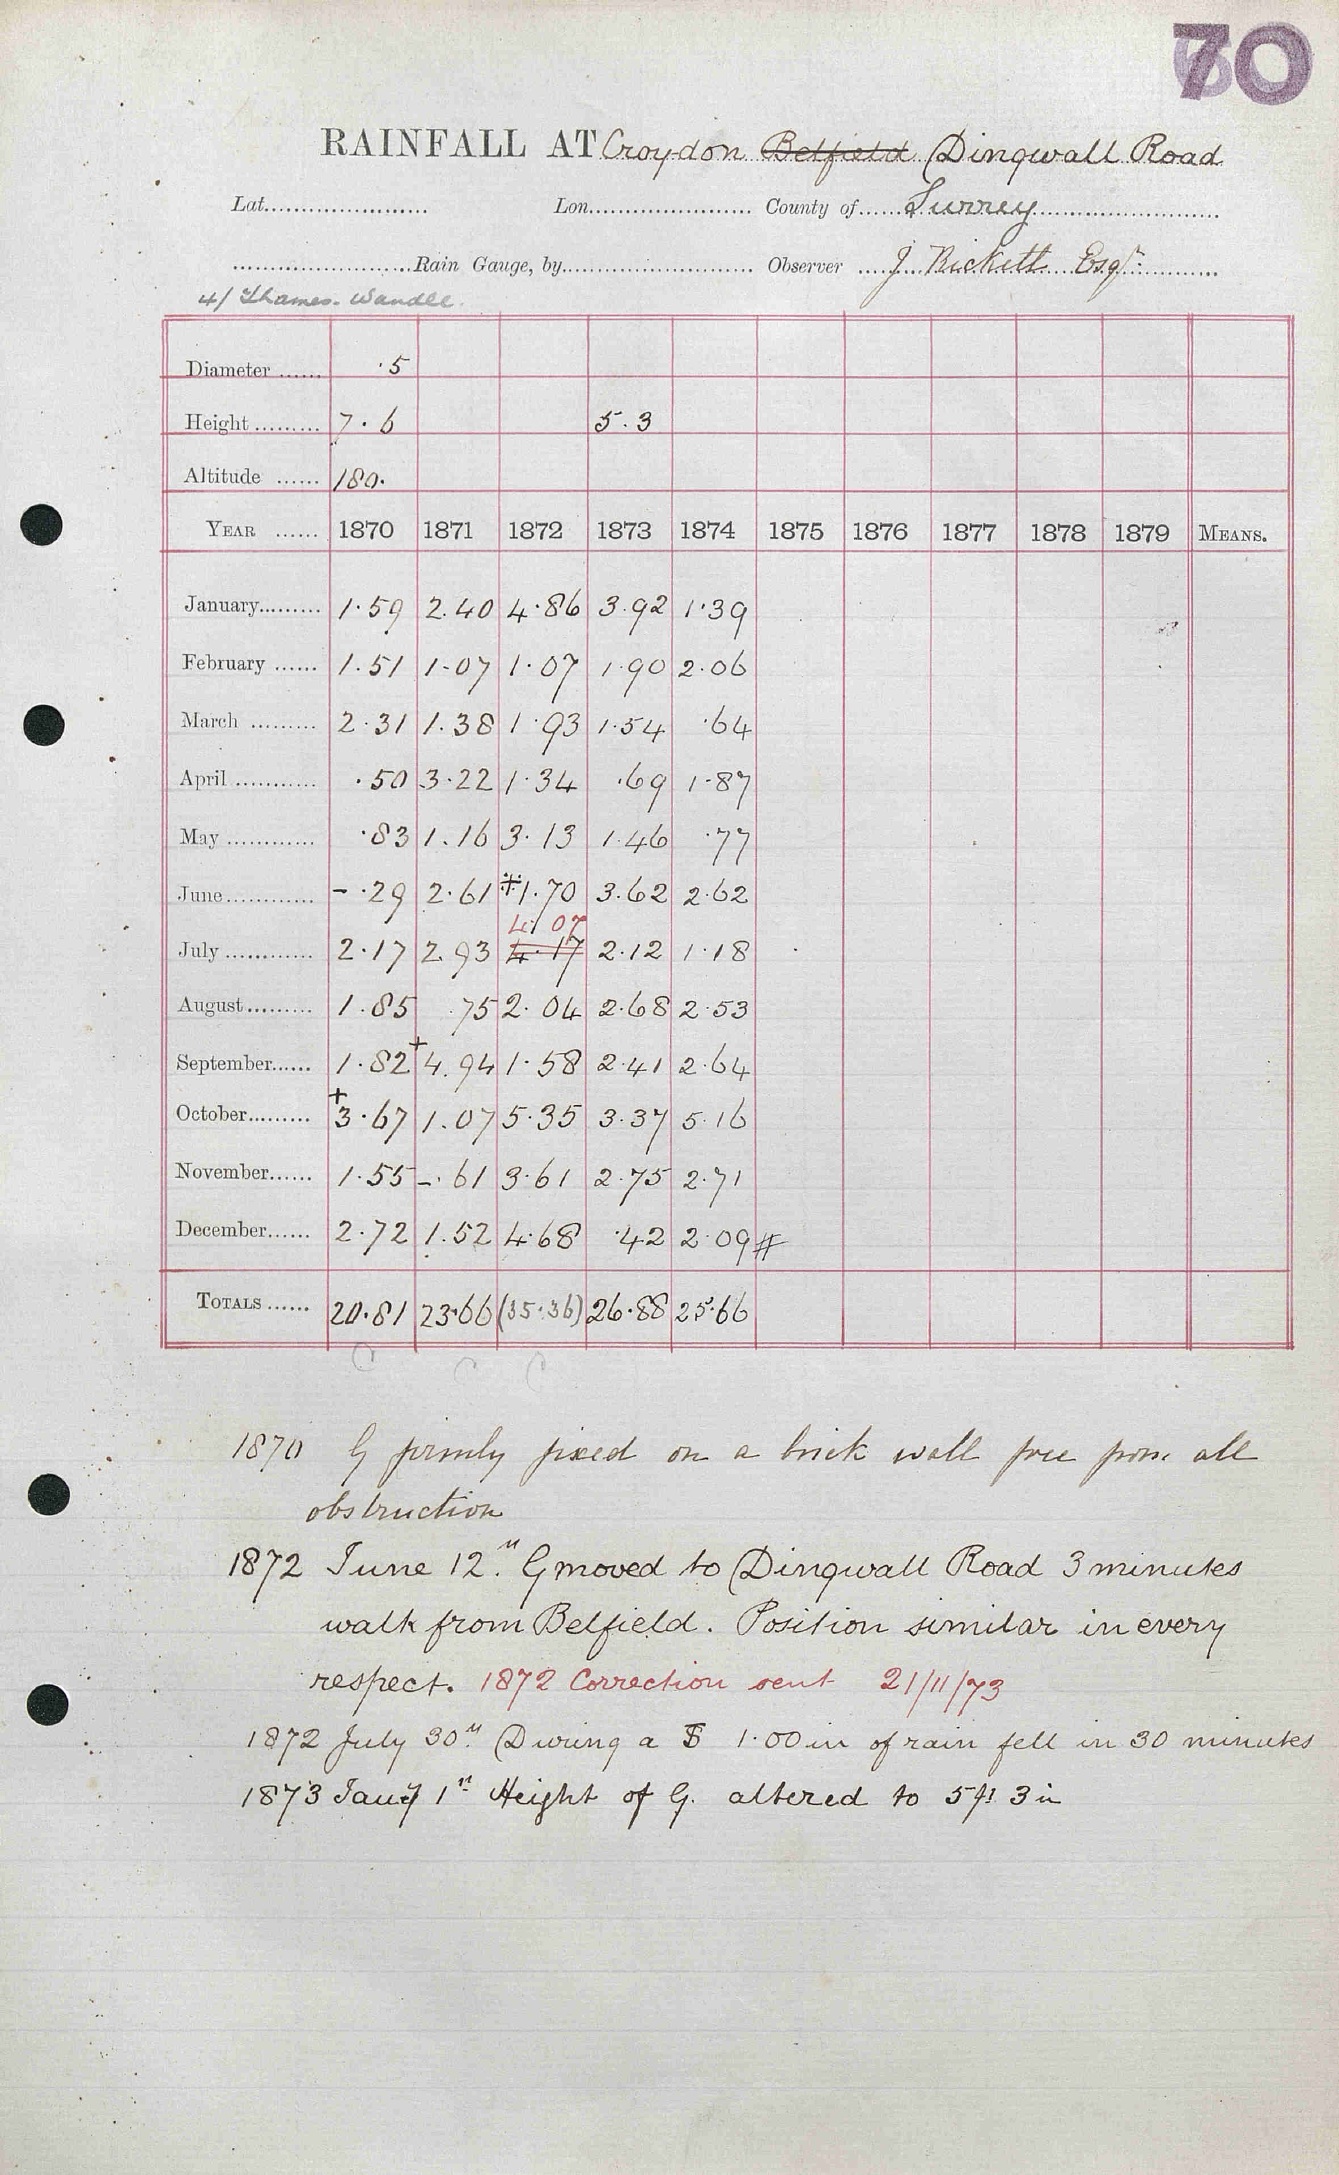 70
RAINFALL AT Croydon Belfield Dingwall Road
Lat...................... Lon...................... County of......Surrey......
........................Rain Gauge, by......................... Observer ....J. Rickett Esqr.
4/ Thames. Wandle.
Diameter ...... ·5
Height ......... 7·6 5.3
Altitude ...... 180.
YEAR ...... 1870 1871 1872 1873 1874 1875 1876 1877 1878 1879 MEANS.
January......... 1·59 2.40 4·86 3.92 1·39
February ...... 1.51 1·07 1·07 1·90 2·06
March ......... 2·31 1.38 1·93 1·54 ·64
April ........... ·50 3·22 1·34 ·69 1·87
May ............ ·83 1.16 3·13 1·46 ·77
June............ - ·29 2·61 ‡1.70 3.62 2·62
4·07
July ............ 2·17 2.93 4·17 2·12 1·18
August......... 1·85 ·75 2·04 2·68 2·53
September...... 1·82 +4.94 1·58 2·41 2·64
October......... +3·67 1.07 5·35 3·37 5·16
November...... 1·55 -·61 3·61 2·75 2·71
December...... 2·72 1.52 4·68 ·42 2·09 #
TOTALS ...... 20·81 23·66 (35·36) 26·88 25·66
1870 G firmly fixed on a brick wall free from all
obstruction
1872 June 12th. G moved to Dingwall Road 3 minutes
walk from Belfield. Position similar in every
respect. 1872 Correction sent 21/11/73
1872 July 30th During a 1·00 in of rain fell in 30 minutes
1873 Jany 1st Height of G. altered to 5 ft 3 in